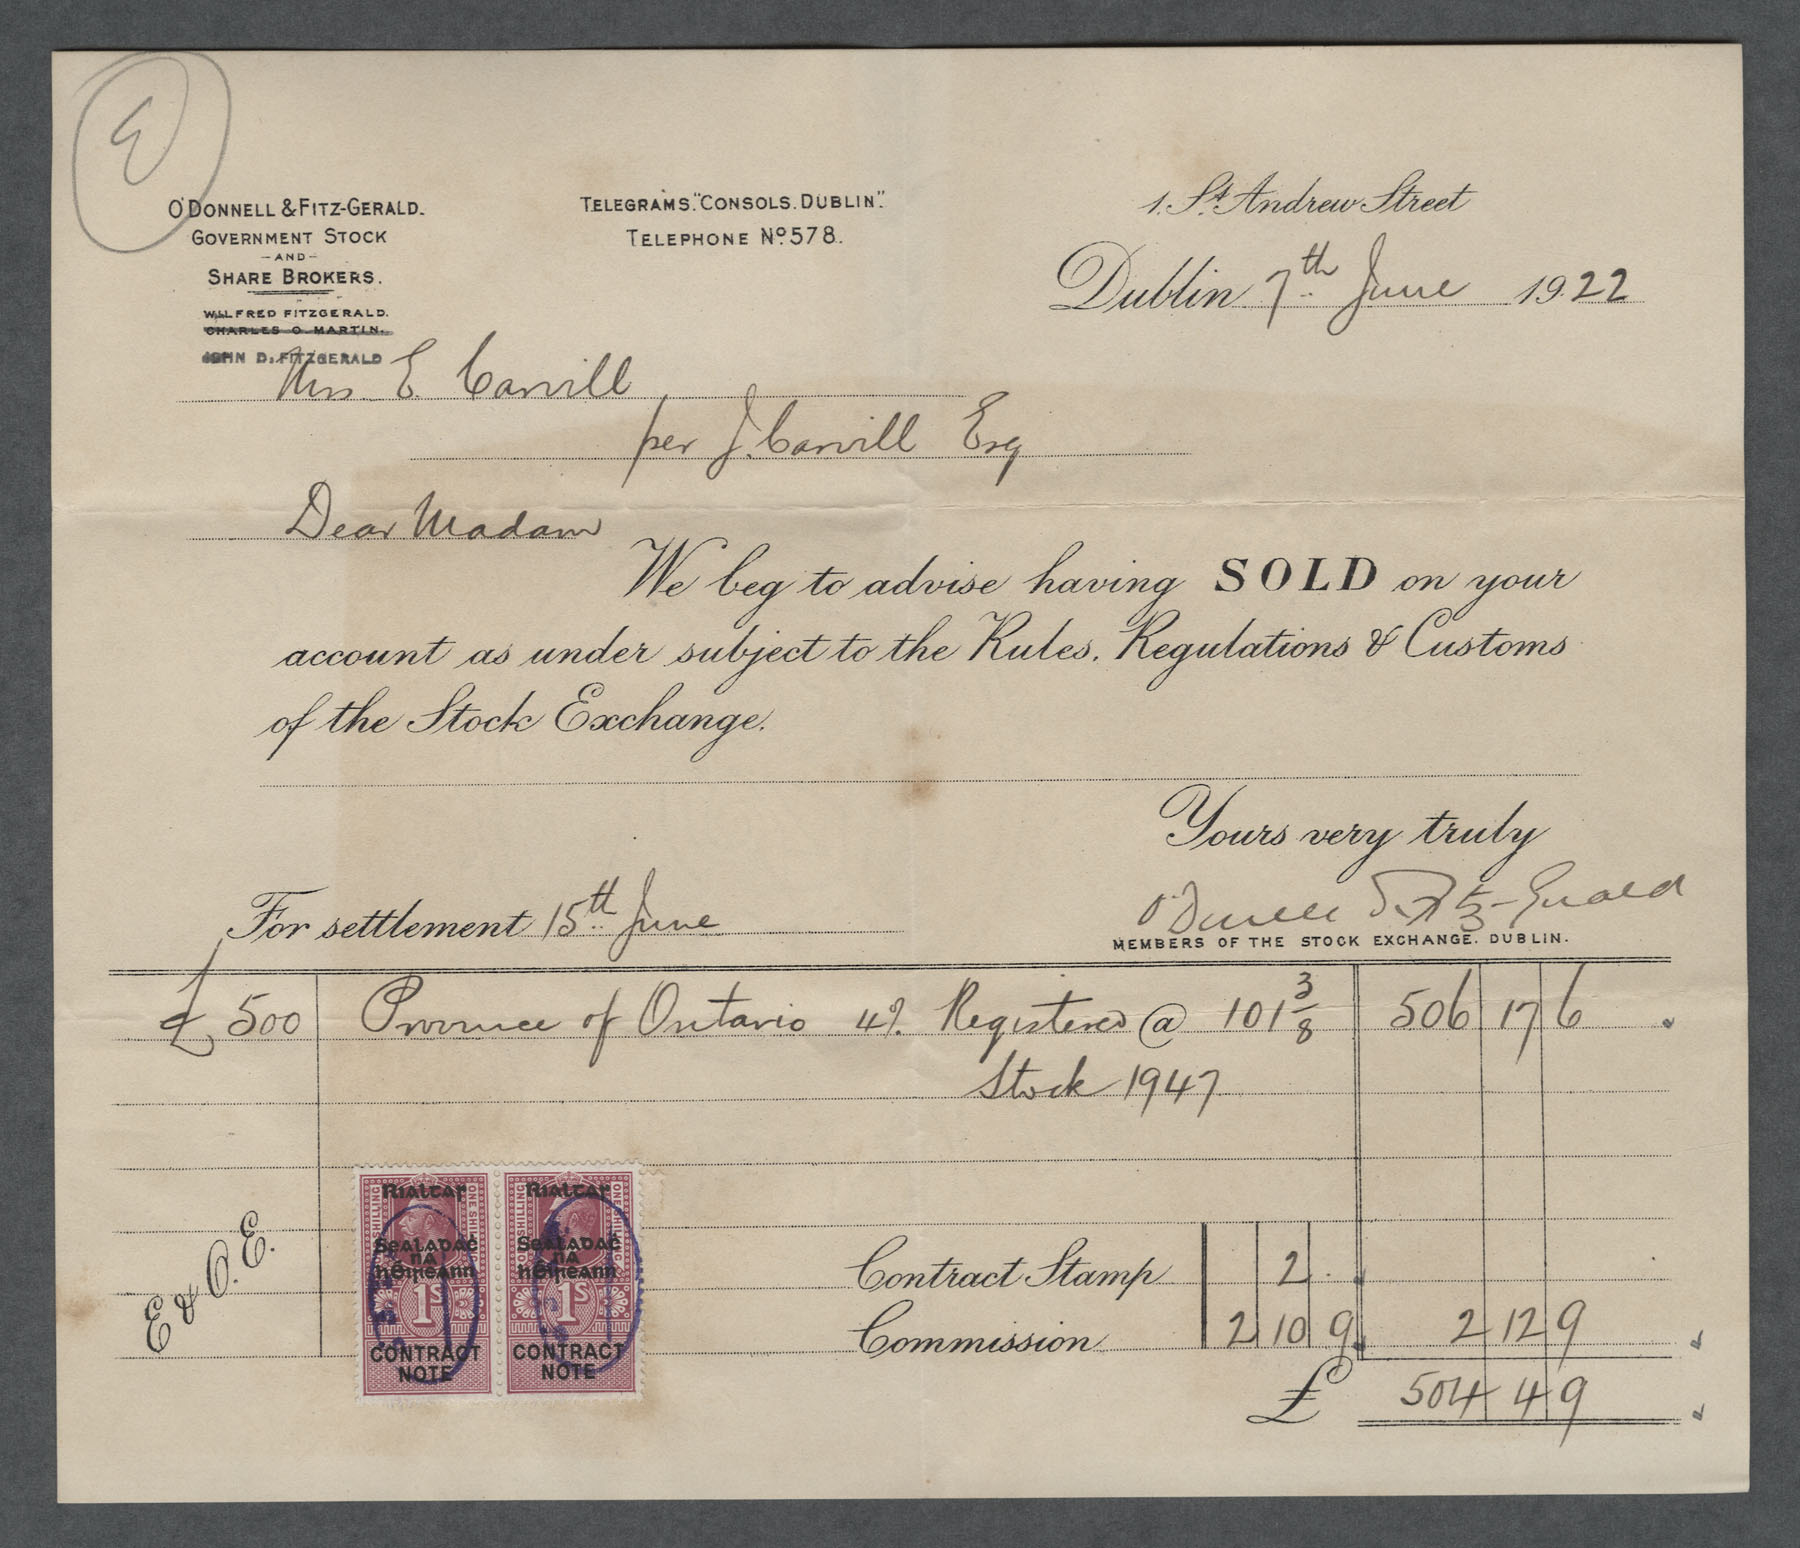 E
O'DONNELL & FITZ-GERALD.
GOVERNMENT STOCK
-AND-
SHARE BROKERS.
WILFRED FITZGERALD.
CHARLES O. MARTIN.
JOHN D. FITZGERALD
TELEGRAMS. "CONSOLS. DUBLIN".
TELEPHONE No. 578.
1. St. Andrew Street
Dublin 7th June 1922
Mrs E. Carvill
per J. Carvill Esq
Dear Madam
We beg to advise having SOLD on your
account as under subject to the Rules, Regulations & Customs
of the Stock Exchange.
Yours very truly
O'Donnell & Fitz-Gerald
MEMBERS OF THE STOCK EXCHANGE. DUBLIN.
For settlement 15th June
£ 500 Province of Ontario 4% Registered @ 101 3/8 506 17 6
Stock 1947
E & O. E.
Rialtas Sealadaċ na hÉireann
ONE SHILLING
1S
CONTRACT NOTE
Rialtas Sealadaċ na hÉireann
ONE SHILLING
1S
CONTRACT NOTE
Contract Stamp 2 .
Commission 2 10 9 2 12 9
£ 504 4 9